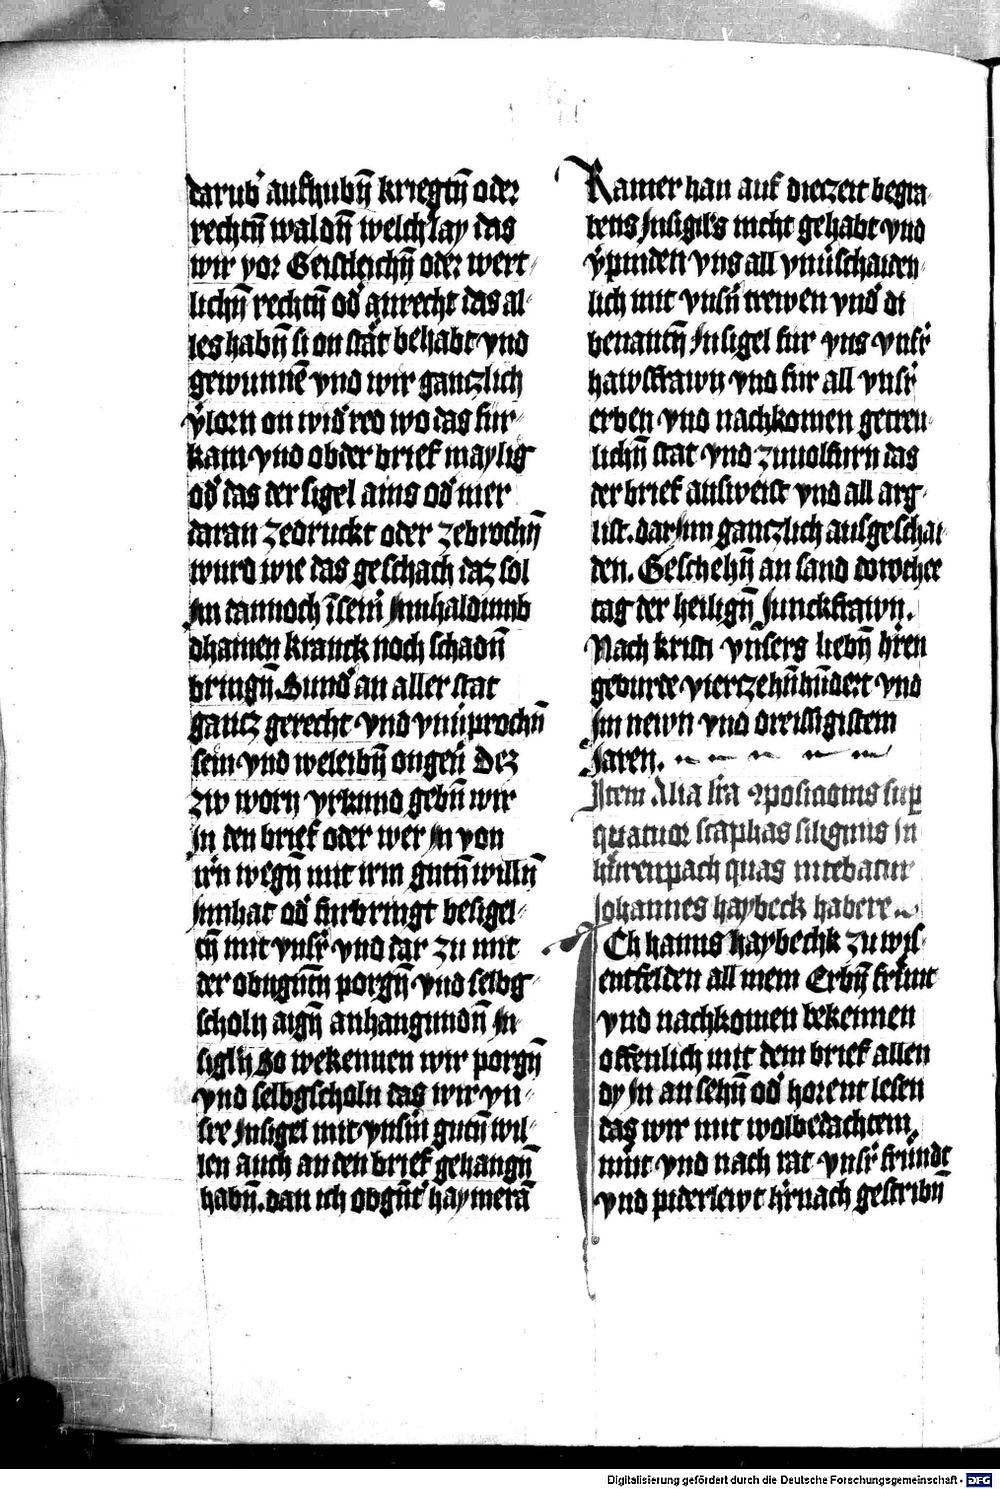 darub aufhubn̄ kriegtn̄ oder
rechtn̄ waldn̄ welchlay das
wir vor Geistleichn̄ oder wert-
lichn̄ rechtn̄ od' anrecht das al-
les habn̄ si on stat behabt vnd
gewunnē vnd wir ganczlich
v'lorn on wid'red wo das fur-
kam vnd ob der brief maylig
od' das der sigel ains od' mer
daran zedruckt oder zebrochn̄
wurd wie das geschach daz sol
Im dannoch ī sein' Innhaldumb
dhainen kranck noch schadn̄
bringn̄. Sund' an aller stat
gancz gerecht vnd vnūprochn̄
sein vnd weleibn̄ ongeū Dez
zw worn vrkund gebn̄ wir
In den brief oder wer In von
irn wegn̄ mit irm gutn̄ willn̄
Innhat od' furbringt besigel-
tn̄ mit vnsr' vnd dar zu mit
der obngnn̄tn̄ porgn̄ vnd selbg-
scholn aign̄ anhangundn̄ In-
sigln̄ So wekennen wir porgn̄
vnd selbgscholn das wir vn-
sre Insigel mit vnsm̄ gutn̄ wil-
len auch an den brief gehangn̄
habn̄. dan ich obgn̄t haymerā
Ramer han auf die czeit begra-
bens Insigils nicht gehabt vnd
v'pinden vns all vnūschaiden-
lich mit vnsn̄ trewen vnd' di
benantn̄ Insigel fur vns vnsr'
hawsfrawn vnd fur all vnsr'
erben vnd nachkomen getreu-
lichn̄ stat vnd zuuolfurn das
der brief ausweist vnd all arg-
list. darIm ganczlich ausgeschai-
den. Geschehn̄ an sand dorothee
tag der heilign̄ Junckfrawn.
Nach kristi vnsers liebn̄ h'ren
geburde vierczehnhūdert vnd
Im newn vnd dreissigistem
Jaren.
Item Alia lr̄a ꝯposicionis sup
quatuor scaphas siliginis in
hürenpach quas nitebatur
Johannes haybeck habere.
Ich hanns haybechk zu wis-
entfelden all mein Erbn̄ frunt
vnd nachkomen bekennen
offenlich mit dem brief allen
dy In an sehn̄ od' horent lesen
das wir mit wolbedachtem
mūt vnd nach rat vnsr' freundt
vnd piderlewt h'rnach gescribn̄
Digitalisierung gefördert durch die Deutsche Forschungsgemeinschaft - DFG